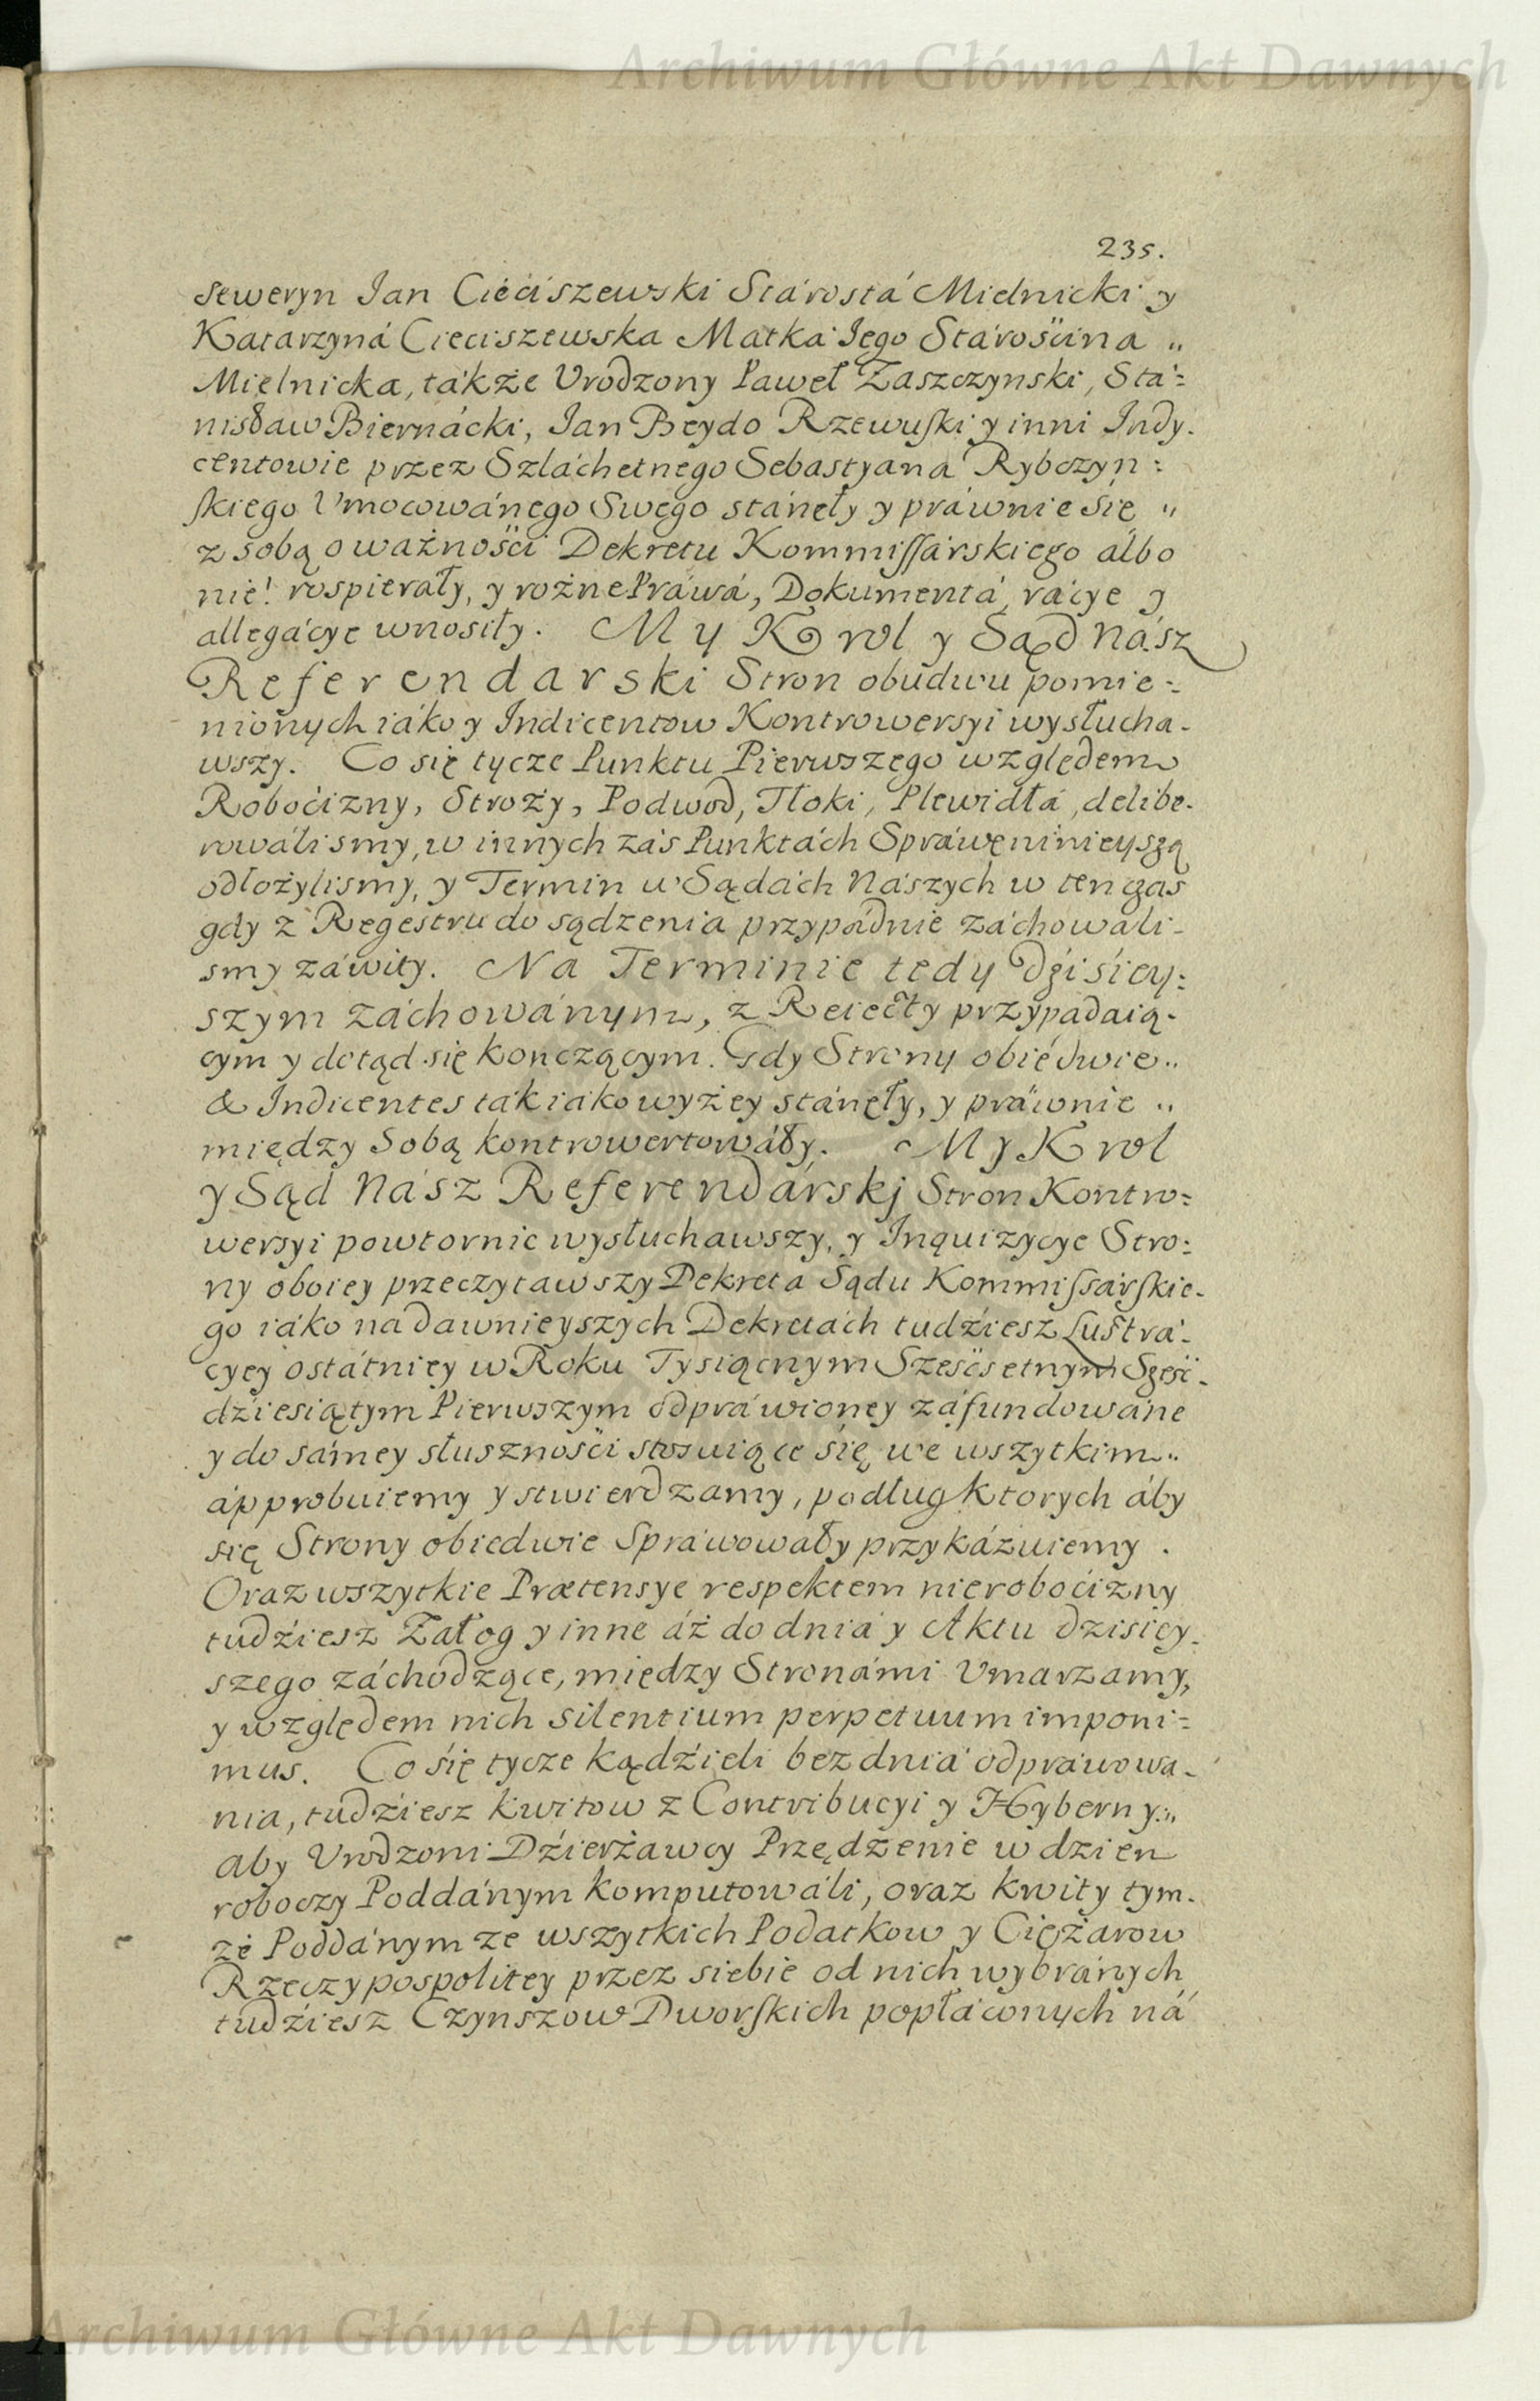 Archiwum Główne Akt Dawnych
235.
Seweryn Jan Cieciszewski Stárostá Mielnicki y
Katarzyná Cieciszewska Matka Jego Stárośćina „
Mielnicka, tákże Vrodzony Paweł Zaszczynski, Stá=
nisław Biernácki, Jan Beydo Rzewuſki y inni Indy.
centowie przez Szláchetnego Sebastyana Rybczyn=
ſkiego Vmocowánego Swego stánęły y práwnie się „
z sobą o ważnośći Dekretu Kommiſſárskiego álbo
nie! rospieráły, y rożne Práwá, Dokumentá, rácye y
allegácye wnosiły. My Krol y Sąd Nász
Referendarski Stron obudwu pomie=
nionych iáko y Indicentow Kontrowersyi wysłucha-
wszy. Co się tycze Punktu Pierwszego względem
Roboćizny, Stroży, Podwod, Tłoki, Plewidłá, delibe-
rowálismy, w innych zás Punktách Spráwę ninieyszą
odłożylismy, y Termin w Sądách Nászych w ten czas
gdy z Regestru do sądzenia przypádnie záchowáli-
smy záwity. Na Terminie tedy Dźiśiey=
szym záchowánym, z Reiecty przypadaią-
cym y dotąd się kończącym. Gdy Strony obiedwie „
& Indicentes ták iáko wyżey stánęły, y práwnie „
między Sobą kontrowertowáły. My Krol
y Sąd Nász Referendárskj Stron Kontro=
wersyi powtornie wysłuchawszy, y Inquizycye Stro=
ny oboiey przeczytawszy Dekreta Sądu Kommiſsárſkie-
go iáko na dawnieyszych Dekretách tudźiesz Lustrá-
cyey ostátniey w Roku Tysiącnym Sześćsetnym Sześć-
dziesiątym Pierwszym odpráwioney záfundowáne
y do sámey słusznośći stosuiące się we wszytkim „
ápprobuiemy y stwierdzamy, podług ktorych áby
się Strony obiedwie Spráwowáły przykázuiemy.
Oraz wszytkie Prætensye respektem nieroboćizny
tudźiesz Załog y inne áż do dniá y Aktu dzisiey-
szego záchodzące, między Stronámi Vmarzamy,
y względem nich silentium perpetuum imponi=
mus. Co się tycze kądźieli bez dniá odpráwowa-
nia, tudźiesz kwitow z Contribucyi y Hyberny „
aby Vrodzoni Dźierżawcy Przędzenie w dzien
roboczy Poddánym komputowáli, oraz kwity tym-
że Poddánym ze wszytkich Podatkow y Ciężarow
Rzeczypospolitey przez siebie od nich wybránych
tudźiesz Czynszow Dworſkich popłáconych ná
Archiwum Główne Akt Dawnych